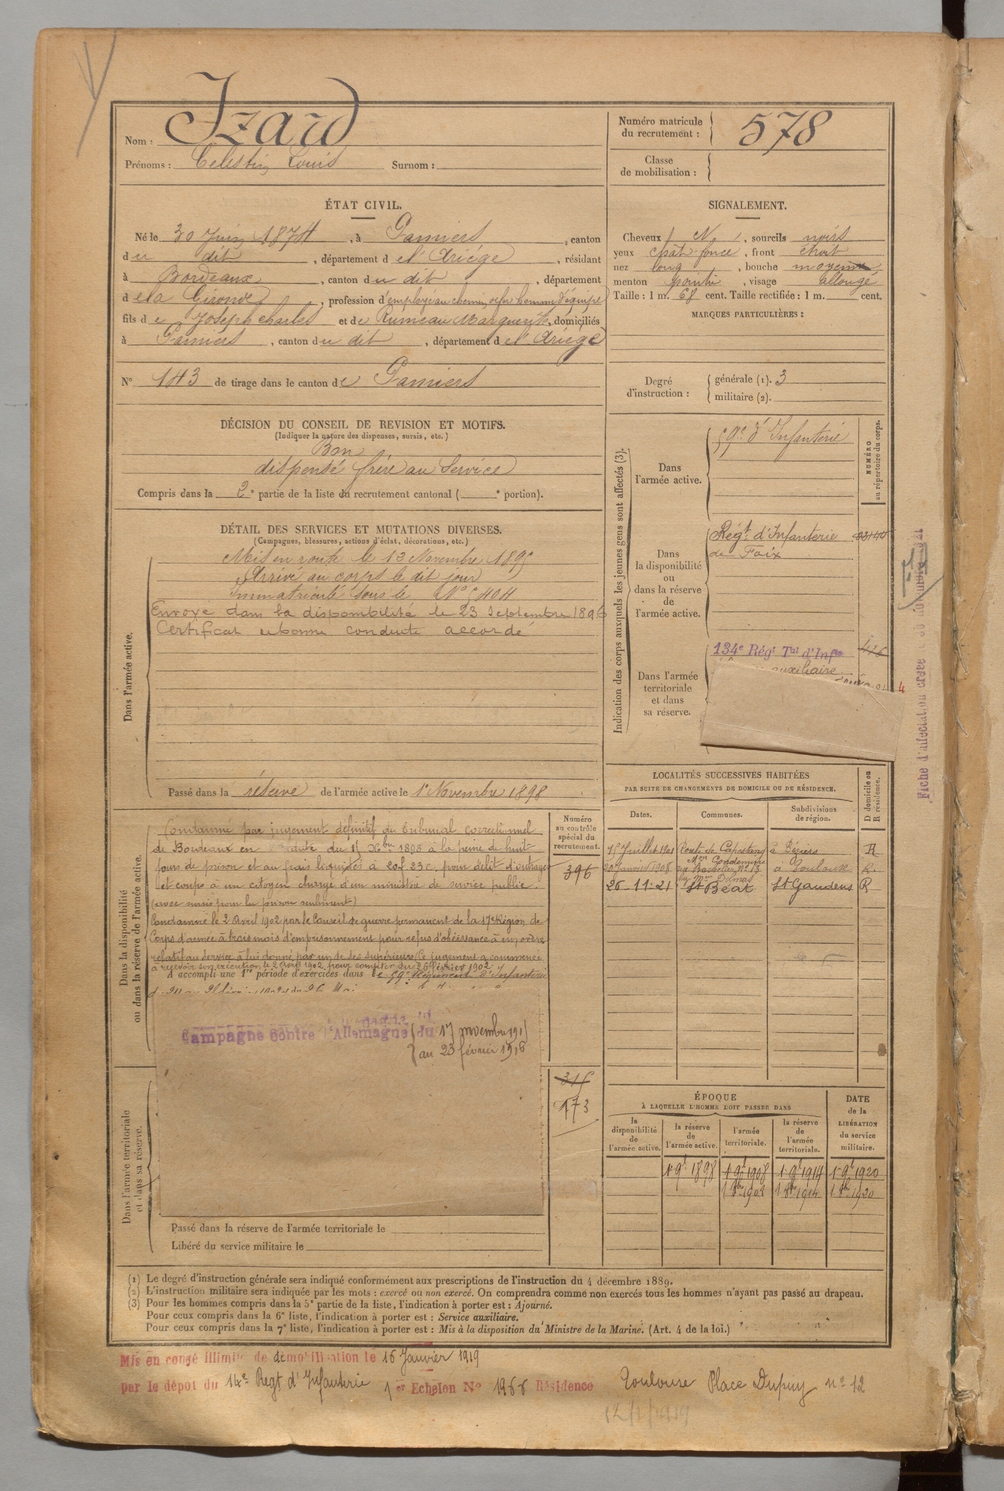 Nom : Izard
Prénoms : Célestin Louis Surnom :
Numéro matricule du recrutement : 578
Classe de mobilisation :
ÉTAT CIVIL.
Né le 30 Juin 1874, à Pamiers, canton
du dit, département de l'Ariège, résidant
à Bordeaux, canton du dit, département
de la Gironde, profession d'employé au chemin de fer homme d'équipe
fils de Joseph Charles et de Rumeau Marguerite, domiciliés
à Pamiers, canton du dit, département de l'Ariège
N° 143 de tirage dans le canton de Pamiers
SIGNALEMENT.
Cheveux N, sourcils noirs
yeux chât foncé, front étroit
nez long, bouche moyenne,
menton pointu, visage allongé
Taille : 1 m. 68 cent. Taille rectifiée : 1 m. cent.
MARQUES PARTICULIÈRES :
Degré d'instruction : générale (1). 3
militaire (2).
DÉCISION DU CONSEIL DE REVISION ET MOTIFS.
(Indiquer la nature des dispenses, sursis, etc.)
Bon
dispensé frère au Service
Compris dans la 2e partie de la liste du recrutement cantonal ( e portion).
DÉTAIL DES SERVICES ET MUTATIONS DIVERSES.
(Campagnes, blessures, actions d'éclat, décorations, etc.)
Dans l'armée active.
Mis en route le 13 Novembre 1895
Arrivé au corps le dit jour
Immatriculé sous le N°
Envoyé dans la disponibilité le 23 Septembre 1896
Certificat de bonne conduite accordé
Passé dans la réserve de l'armée active le 1er Novembre 1898
Indication des corps auxquels les jeunes gens sont affectés (3).
NUMÉRO au répertoire du corps.
Dans l'armée active.
59e d'Infanterie
Dans la disponibilité ou dans la réserve de l'armée active.
Régt d'Infanterie
de Foix
Dans l'armée territoriale et dans sa réserve.
134e Régt Tal d'Infie
auxiliaire
Dans la disponibilité ou dans la réserve de l'armée active.
Condamné par jugement définitif du tribunal correctionnel
de Bordeaux en date du 15 Xbre 1898 à la peine de huit
jours de prison et au frais liquidés à 20f 23c pour délit d'outrages
et coups à un citoyen chargé d'un ministère de service public.
(avec sursis pour la prison seulement)
Condamné le 2 Avril 1902 par le Conseil de guerre permanent de la 17e Région de
Corps d'armée à trois mois d'emprisonnement pour refus d'obéissance à un ordre
relatif au service à lui donné par un de ses supérieurs. Ce jugement a commencé
à recevoir son exécution le 2 Avril 1902 pour compter du 26 février 1902
A accompli une 1re période d'exercices dans le 59e Régiment d'Infanterie
Numéro au contrôle spécial du recrutement.
396
316
173
Campagne contre l'Allemagne du 17 novembre 191
au 23 février 1916
Dans l'armée territoriale et dans sa réserve.
Passé dans la réserve de l'armée territoriale le
Libéré du service militaire le
LOCALITÉS SUCCESSIVES HABITÉES
PAR SUITE DE CHANGEMENTS DE DOMICILE OU DE RÉSIDENCE.
Dates. Communes. Subdivisions de région. D domicile ou R résidence.
Béziers
Toulouse
26-11-21 St Béat St Gaudens R
ÉPOQUE
À LAQUELLE L'HOMME DOIT PASSER DANS
la disponibilité de l'armée active. la réserve de l'armée active. l'armée territoriale. la réserve de l'armée territoriale.
DATE de la LIBÉRATION du service militaire.
1 9t 1898 1 9t 1908 1 9t 1914 1 9t 1920
1908 1914 1920
(1) Le degré d'instruction générale sera indiqué conformément aux prescriptions de l'instruction du 4 décembre 1889.
(2) L'instruction militaire sera indiquée par les mots : exercé ou non exercé. On comprendra comme non exercés tous les hommes n'ayant pas passé au drapeau.
(3) Pour les hommes compris dans la 5e partie de la liste, l'indication à porter est : Ajourné.
Pour ceux compris dans la 6e liste, l'indication à porter est : Service auxiliaire.
Pour ceux compris dans la 7e liste, l'indication à porter est : Mis à la disposition du Ministre de la Marine. (Art. 4 de la loi.)
Mis en congé illimité de démobilisation le 16 Janvier 1919
par le dépôt du 14e Regt d'Infanterie 1er Echelon N° 1966 Résidence Toulouse Place Dupuy n° 12